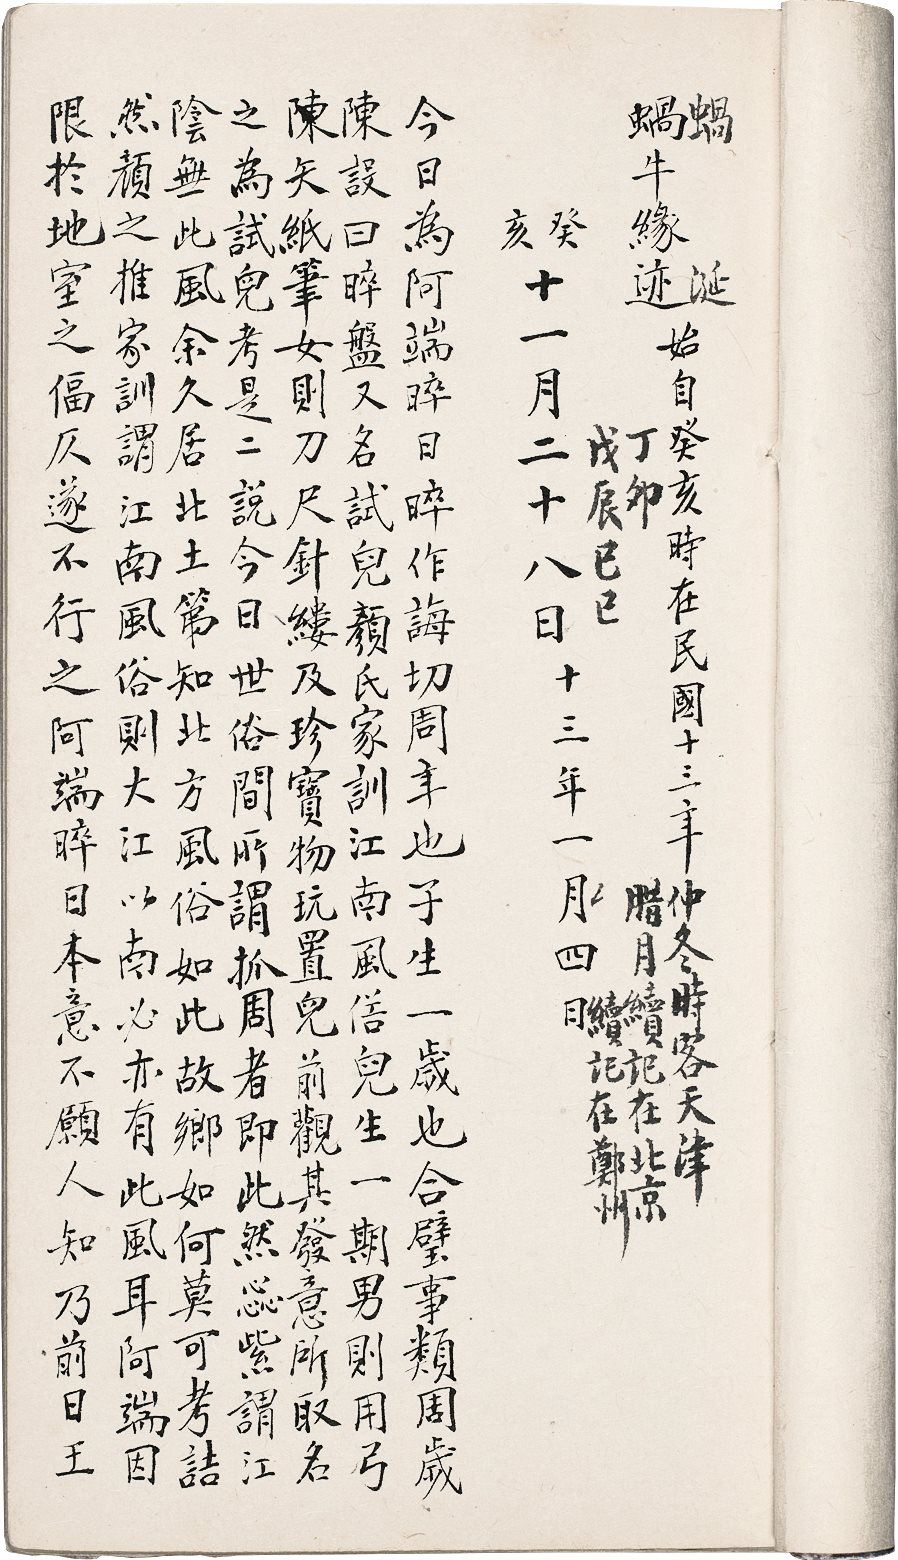 蝸
蝸牛緣迹
涎
始自癸亥時在民國十三年仲冬時客天津
丁卯
腊月續記在北京
戊辰己巳
續記在鄭州
癸亥
十一月二十八日
十三年一月四日
今日為阿端晬日晬作誨切周年也子生一歲也合璧事類周歲
陳設曰晬盤又名試兒顏氏家訓江南風俗兒生一期男則用弓
陳矢紙筆女則刀尺針縷及珍寶物玩置兒前觀其發意所取名
之為試兒考是二說今日世俗間所謂抓周者即此然惢紫謂江
陰無此風余久居北土第知北方風俗如此故鄉如何莫可考詰
然顏之推家訓謂江南風俗則大江以南必亦有此風耳阿端因
限於地室之偪仄遂不行之阿端晬日本意不願人知乃前日王